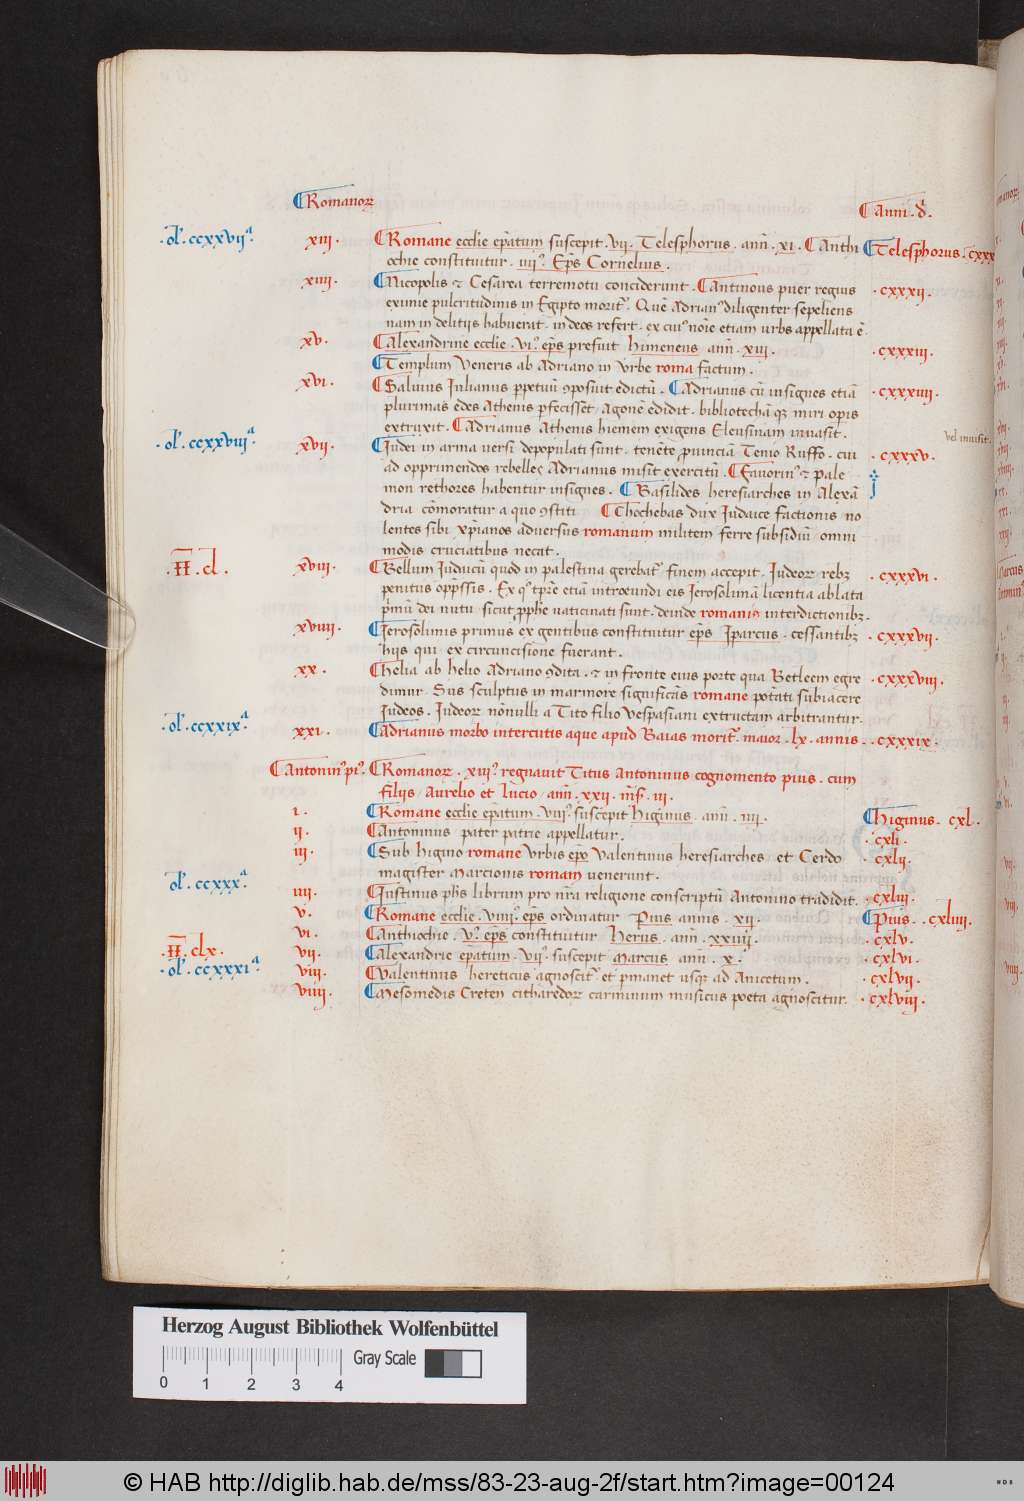 Romanoꝝ
Anni . d̄ .
. ol' . ccxxvij.ª xiij . Romane eccl̄ie ep̄atum suscepit . vij . Telesphorus . ann̄ . xi . Anthi Telesphorus . cxxx
ochie constituitur . iiij.º Ep̄s Cornelius .
xiiij . Nicopolis et Cesarea terremotu conciderunt . Antinous puer regius . cxxxij .
eximie pulcritudinis in Egipto morit². Quē Adrian⁹ diligenter sepeliens
nam in delitijs habuerat . in deos refert . ex cui⁹ noīe etiam urbs appellata ē .
xv . Alexandrine eccl̄ie . vi.º ep̄s presuit himeneus ann̄ . xiij . . cxxxiij .
Templum Veneris ab Adriano in Vrbe roma factum .
xvi . Saluius Julianus ꝑpetuū ꝯposuit edictū . Adrianus cū insignes etiā . cxxxiiij .
plurimas edes Athenis ꝑfecisset / agonē edidit . bibliothecā qꝫ miri oꝑis
extruxit . Adrianus Athenis hiemem exigens Eleusinam inuasit . vel inuisit .
. ol' . ccxxviij.ª xvij . Judei in arma uersi depopulati sunt . tenēte ꝓuinciā Tenio Ruffo . cui . cxxxv .
ad opprimendos rebelles Adrianus misit exercitū . Fauorin⁹ et pale
mon rethores habentur insignes . Basilides heresiarches in Alexā
dria cōmoratur a quo ꝯstiti Chochebas dux Judaice factionis no
lentes sibi xp̄ianos aduersus romanum militem ferre subsidiū / omni
modis cruciatibus necat .
. H . cl . xviij . Bellum Judaicū quod in palestina gerebat² finem accepit . Judeoꝝ rebꝫ . cxxxvi .
penitus opp̄ssis . Ex q⁹ tp̄re etiā introeundi eis Jerosolimā licentia ablata
p̄mū dei nutu . sicut ꝓph̄e uaticinati sunt . deinde romanis interdictionibꝫ .
xviiij . Jerosolimis primus ex gentibus constituitur ep̄s Marcus . cessantibꝫ . cxxxvij .
hijs qui . ex circuncisione fuerant .
xx . Helia ab helio Adriano ꝯdita . et in fronte eius porte qua Betleem egre . cxxxviij .
dimur . Sus sculptus in marmore significās romane potāti subiacere
Judeos . Judeoꝝ nōnulli a Tito filio Vespasiani extructam arbitrantur .
. ol' . ccxxix.ª xxi . Adrianus morbo intercutis aque apud Baias morit² . maior . lx . annis . . cxxxix .
Antonin⁹ pi⁹ . Romanoꝝ . xiij.º regnauit Titus Antoninus cognomento pius . cum
filijs / Aurelio et Lucio / ann̄ . xxij . m̄s . iij .
i . Romane eccl̄ie ep̄atum . viij.º suscepit higinus . ann̄ . iiij . Higinus . cxl .
ij . Antoninus pater patrie appellatur . . cxli .
iij . Sub higino romane urbis ep̄o Valentinus heresiarches / et Cerdo . cxlij .
magister Marcionis romam uenerunt .
. ol' . ccxxx.ª iiij . Justinus ph̄s librum pro nr̄a religione conscriptū Antonino tradidit . . cxliij .
v . Romane eccl̄ie . viiij.º ep̄s ordinatur Pius annis . xv . Pius . . cxliiij .
vi . Anthiochie . v.º ep̄s constituitur Herus . ann̄ . xxiiij . . cxlv .
. H . clx . vij . Alexandrie ep̄atum . vij.º suscepit Marcus ann̄ . x . . cxlvi .
. ol' . ccxxxi.ª viij . Valentinus hereticus agnoscit² . et ꝑmanet usqꝫ ad Anicetum . . cxlvij .
viiij . Mesomedis Creten citharedoꝝ carminum musicus poeta agnoscitur . . cxlviij .
Herzog August Bibliothek Wolfenbüttel
Gray Scale
0 1 2 3 4
© HAB http://diglib.hab.de/mss/83-23-aug-2f/start.htm?image=00124